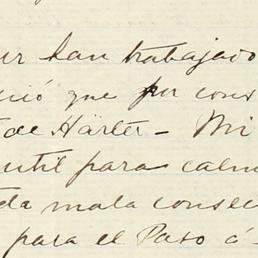 ur han trabajado
ció que por cons
de Härter - Mi
util para calm
da mala consec
para el Paso á